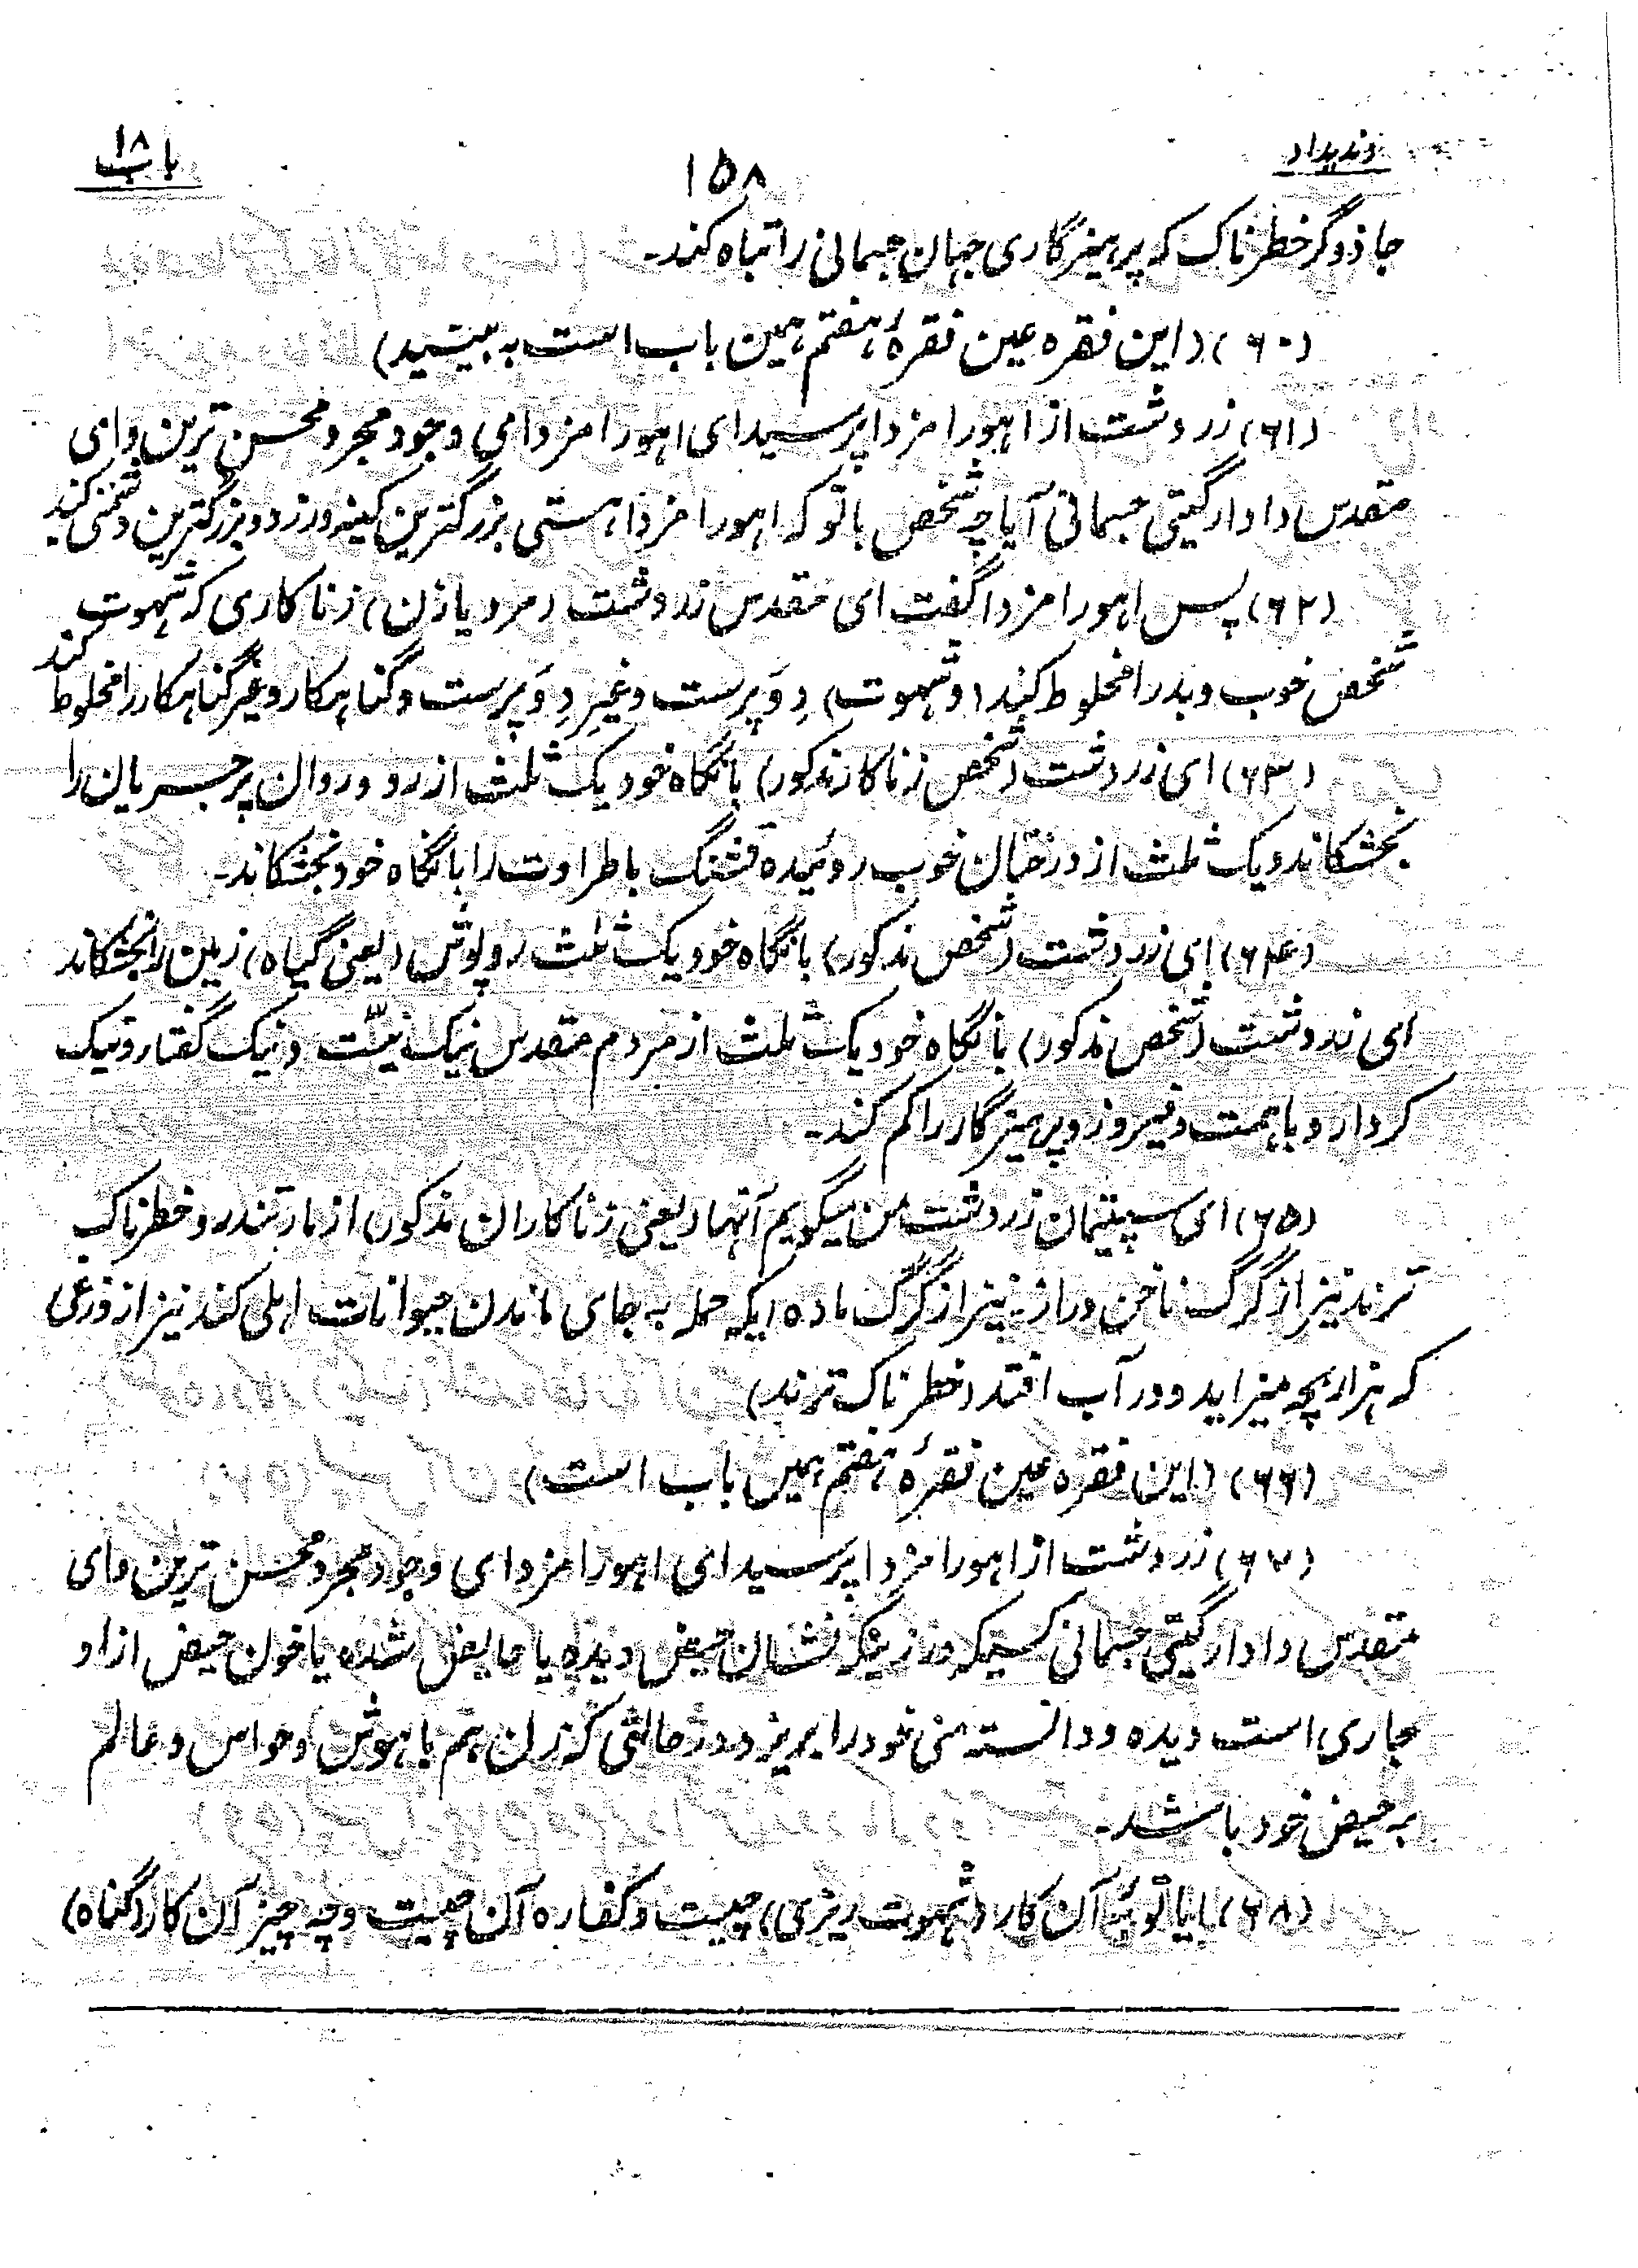 وندیداد
۱۵۸
باب ۱۸
جاذوگر خطرناک که پرهیزگاری جهان جسمانی را تباه کند۔
(۶۰) (این فقره عین فقرهٔ هفتم همین باب است به بینید)
(۶۱) زردشت از اهورا مزدا پرسید ای اهورا مزدا می وجود مجرد محسن ترین و ای
مقدس دادار گیتی جسمانی آیا چه شخص با تو که اهورا مزدا هستی بزرگترین کینه ورزد و بزرگترین دشمنی کند
(۶۲) پس اهورا مزدا گفت ای مقدس زردشت (مرد یا زن) زناکاری که شهوت
شخص خوب و بد را مخلوط کند (و شهوت) دِوَپرست و غیرِ دِوَپرست و گناهکار و غیر گناهکار را مخلوط کند
(۶۳) ای زردشت (شخص زناکار مذکور) با نگاه خود یک ثلث از رود روان پر جریان را
بخشکاند و یک ثلث از درختان خوب روئیده قشنگ با طراوت را با نگاه خود بخشکاند۔
(۶۴) ای زردشت (شخص مذکور) با نگاه خود یک ثلث روپوش (یعنی گیاه) زمین را بخشکاند
ای زردشت (شخص مذکور) با نگاه خود یک ثلث از مردم مقدس نیک نیّت و نیک گفتار و نیک
کردار و باهمت و فیروز و پرهیزگار را کم کند۔
(۶۵) ای سپیتمان زردشت من میگویم آنها (یعنی زناکاران مذکور) از مار تندرو خطرناک
ترند نیز از گرگ ناخن دراز نیز از گرگ ماده ایکه حمله به جای ماندن حیوانات اهلی کند نیز از وزغی
که هزار بچه میزاید و در آب افتد (خطرناک ترند)
(۶۶) (این فقره عین فقرهٔ هفتم همین باب است)
(۶۷) زردشت از اهورا مزدا پرسید ای اهورا مزدا ای وجود مجرد محسن ترین و ای
مقدس دادار گیتی جسمانی کسیکه در زنیکه نشان حیض دیده یا حایض شده یا خون حیض از او
جاری است دیده و دانسته منی خود را بریزد در حالتی که زن هم با هوش و حواس و عالم
به حیض خود باشد۔
(۶۸) آن کار (شهوت ریزی) چیست و کفاره آن چیست و چه چیز آن کار (گناه)